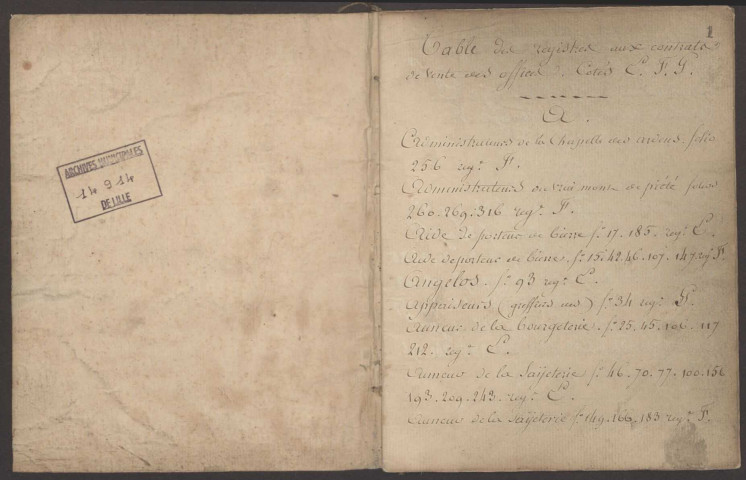 ARCHIVES MUNICIPALES
14 914
DE LILLE
1
Table des registres aux contrats
de vente des offices. Cotés E. F. G.
A.
Administrateurs de la Chapelle des ardens folio
256 reg.e F.
Administrateurs du vrai mont de piété folios
260. 269. 316 reg.e F.
Aide de porteur de bierre f.o 17. 185. reg.e E.
Aide de porteur de bierre. f.o 15. 42. 46. 107. 147 reg.e F.
Angelos. f.o 93 reg.e E.
Appariseurs (greffiers des) f.o 34 reg.e G.
Auneur de la bourgeterie. f.o 25. 45. 106. 117
212. reg.e E.
Auneur de la Saÿeterie f.o 46. 70. 77. 100. 156
193. 209. 243. reg.e E.
Auneur de la Saÿeterie f.o 149. 166. 183 reg.e F.